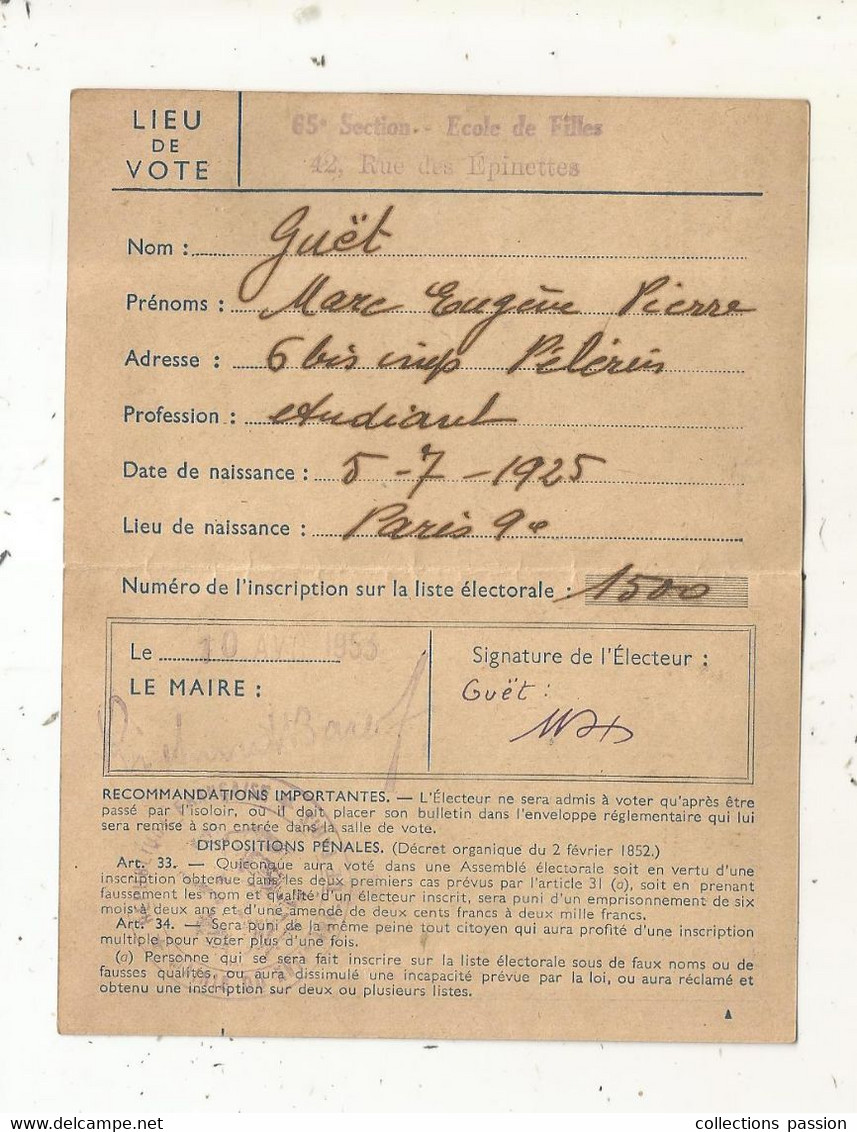 LIEU
DE
VOTE
65e Section. - Ecole de Filles
42, Rue des Épinettes
Nom : Guët
Prénoms : Marc Eugève Pierre
Adresse : 6 bis imp Pélérin
Profession : etudiant
Date de naissance : 5-7-1925
Lieu de naissance : Paris 9e
Numéro de l'inscription sur la liste électorale : 1500
Le 10 AVR 1953
LE MAIRE :
Signature de l'Électeur :
Guët :
RECOMMANDATIONS IMPORTANTES. — L'Électeur ne sera admis à voter qu'après être
passé par l'isoloir, ou il doit placer son bulletin dans l'enveloppe réglementaire qui lui
sera remise à son entrée dans la salle de vote.
DISPOSITIONS PÉNALES. (Décret organique du 2 février 1852.)
Art. 33. — Quiconque aura voté dans une Assemblé électorale soit en vertu d'une
inscription obtenue dans les deux premiers cas prévus par l'article 31 (a), soit en prenant
faussement les nom et qualité d'un électeur inscrit, sera puni d'un emprisonnement de six
mois à deux ans et d'une amende de deux cents francs à deux mille francs.
Art. 34. — Sera puni de la même peine tout citoyen qui aura profité d'une inscription
multiple pour voter plus d'une fois.
(a) Personne qui se sera fait inscrire sur la liste électorale sous de faux noms ou de
fausses qualités, ou aura dissimulé une incapacité prévue par la loi, ou aura réclamé et
obtenu une inscription sur deux ou plusieurs listes.
A
collections passion